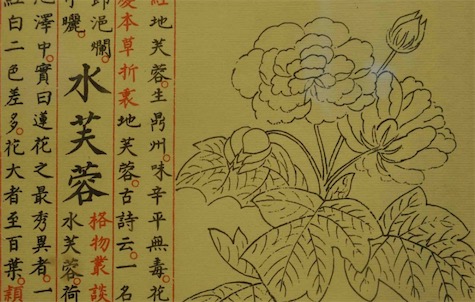 地芙蓉。生鼎州。味辛平無毒。花
慶本草折衷地芙蓉。古詩云。一名
浥爛。
曬。
水芙蓉
格物叢談
水芙蓉。荷
澤中。實曰蓮花之最秀異者。一
紅白二色差多。花大者至百葉。類